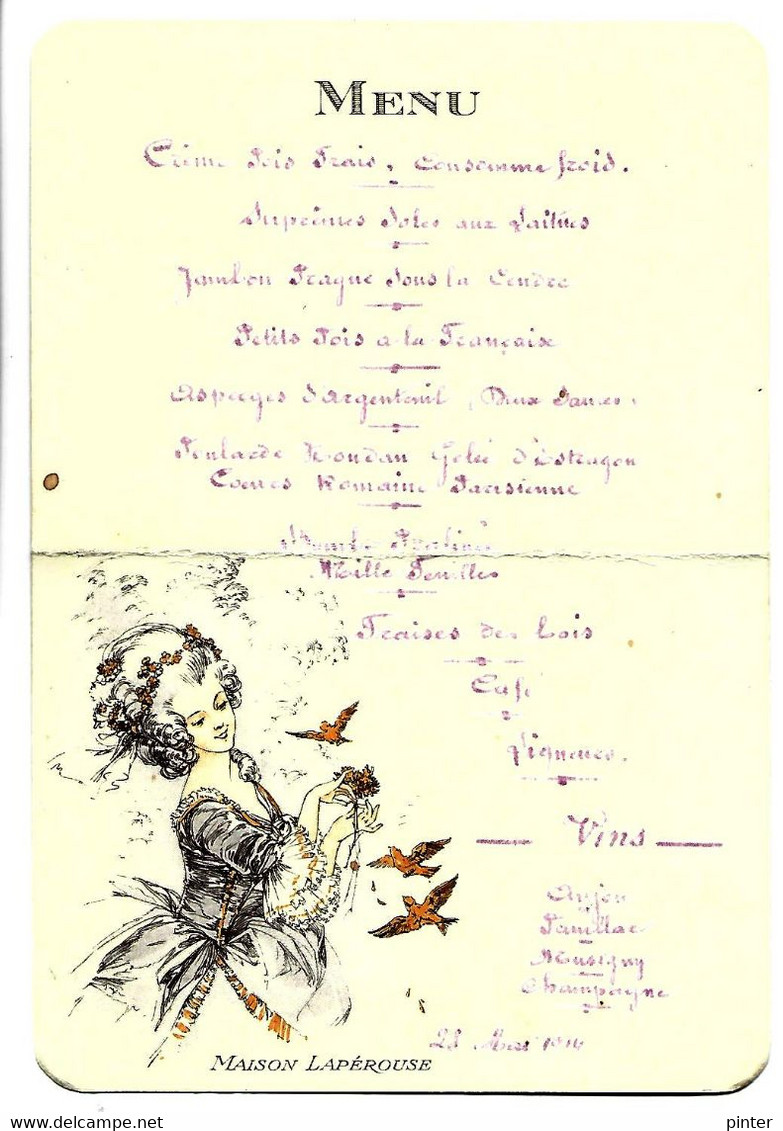 MENU
Crème Pois Frais, Consomme froid.
Suprêmes Soles aux Laitues
Jambon Prague Sous la Cendre
Petits Pois a la Française
Asperges d'Argenteuil, Deux Sauces.
Poularde Houdan Gelée d'Estragon
Coeurs Romaine Parisienne
Bombe Pralinée
Mille Feuilles
Fraises des bois
Café
Liqueurs.
Vins
Anjou
Pauillac
Musigny
Champagne
28 Mai
MAISON LAPÉROUSE
delcampe.net
pinter